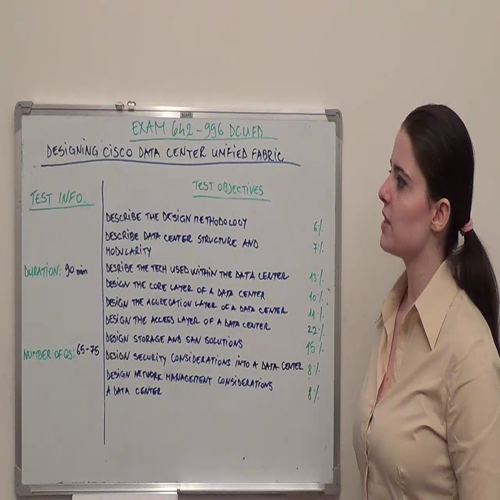 EXAM 642-996 DCUFD
DESIGNING CISCO DATA CENTER UNIFIED FABRIC
TEST INFO:
DURATION: 90 min
NUMBER OF QS: 65-75
TEST OBJECTIVES
DESCRIBE THE DESIGN METHODOLOGY 6%
DESCRIBE DATA CENTER STRUCTURE AND 7%
MODULARITY
DESRIBE THE TECH USED WITHIN THE DATA CENTER 13%
DESIGN THE CORE LAYER OF A DATA CENTER 10%
DESIGN THE AGGREGATION LAYER OF A DATA CENTER 11%
DESIGN THE ACCESS LAYER OF A DATA CENTER 22%
DESIGN STORAGE AND SAN SOLUTIONS 15%
DESIGN SECURITY CONSIDERATIONS INTO A DATA CENTER 8%
DESIGN NETWORK MANAGEMENT CONSIDERATIONS
A DATA CENTER 8%